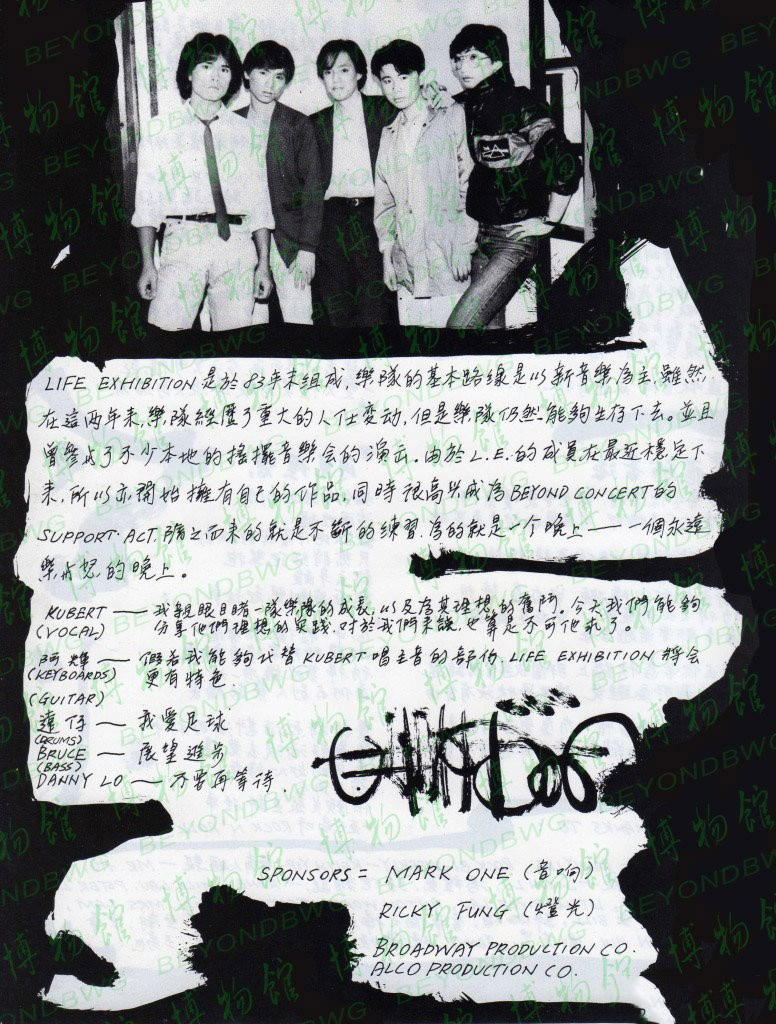 LIFE EXHIBITION 是於83年末組成,樂隊的基本路線是以新音樂為主,雖然
在這兩年來,樂隊經歷了重大的人仕变动,但是樂隊仍然能夠生存下去。並且
曾參与了不少本地的搖擺音樂会的演出。由於L.E.的成員在最近穩定下
來,所以亦開始擁有自己的作品,同時很高兴成為BEYOND CONCERT的
SUPPORT ACT,隨之而來的就是不斷的練習,為的就是一个晚上——一個永遠
樂与怒的晚上。
KUBERT — 我親眼目睹一隊樂隊的成長,以及為其理想的奮鬥。今天我們能夠
(VOCAL) 分享他們理想的实踐,对於我們來說,也算是不可他求了。
阿輝 — 假若我能夠代替KUBERT唱主音的部份,LIFE EXHIBITION將会
(KEYBOARDS) 更有特色.
(GUITAR)
遠仔 — 我愛足球
(DRUMS)
BRUCE — 展望進步
(BASS)
DANNY LO — 不要再等待.
SPONSORS = MARK ONE (音响)
RICKY FUNG (燈光)
BROADWAY PRODUCTION CO.
ALCO PRODUCTION CO.
博物館
BEYONDBWG